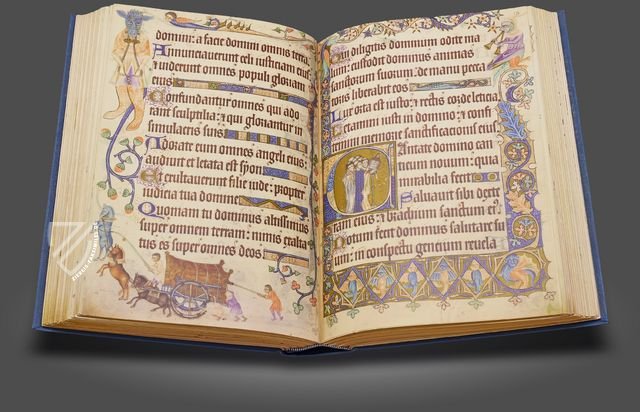 domini: a facie domini omnis terra.
Annunciauerunt celi iusticiam eius:
& uiderunt omnes populi gloriam
eius.
Confundantur omnes qui ado
rant sculptilia: & qui gloriantur in
simulacris suis.
Adorate eum omnes angeli eius:
audiuit et letata est syon.
Et exultauerunt filie iude: propter
iudicia tua domine.
Quoniam tu dominus altissimus
super omnem terram: nimis exalta
tus es super omnes deos.
Qui diligitis dominum odite ma
lum: custodit dominus animas
sanctorum suorum: de manu pecca
toris liberabit eos.
Lux orta est iusto: & rectis corde leticia.
Letamini iusti in domino: & confi
temini memorie sanctificacionis eius.
Cantate domino can
ticum nouum: quia
mirabilia fecit.
Saluauit sibi dexte
ra eius: & brachium sanctum eius.
Notum fecit dominus salutare su
um: in conspectu gencium reuela